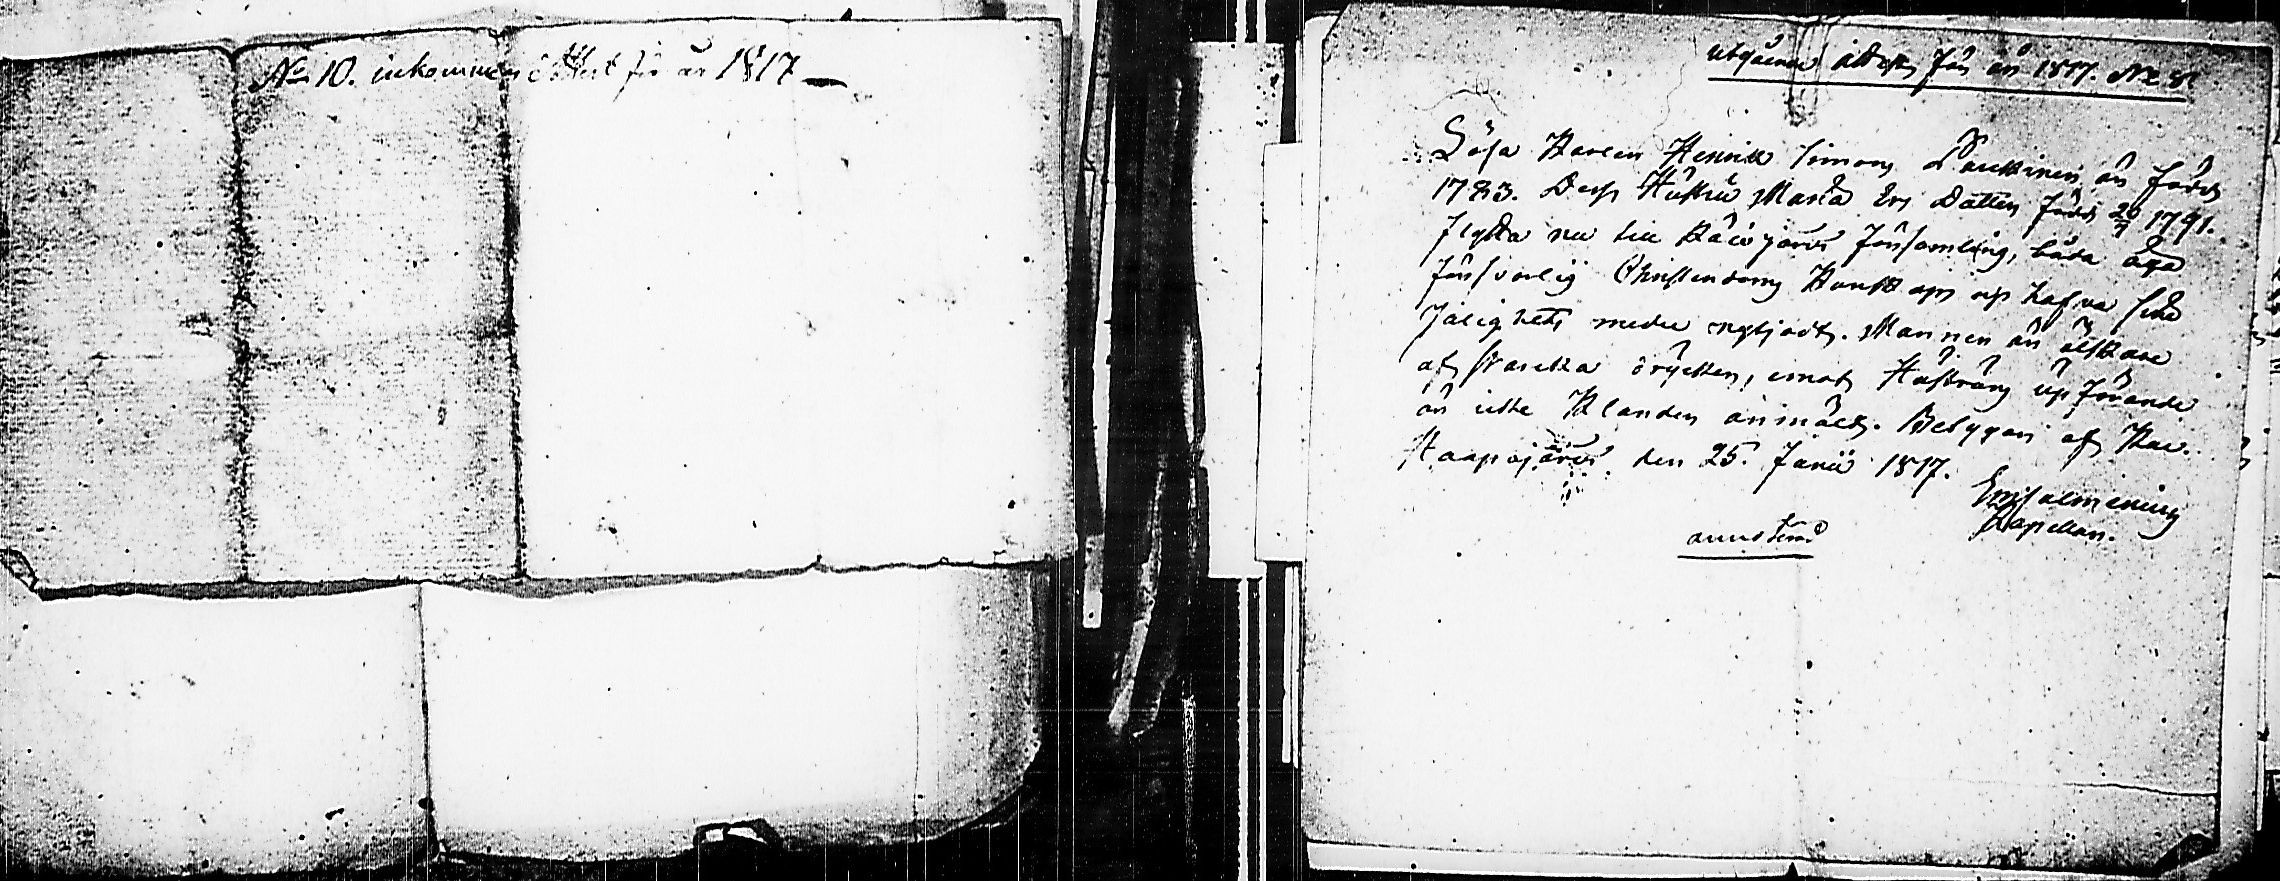 No 10. inkommen Attest för år 1817
utgående attest för år 1817. No 8
Lösa Karlen Henrik Simons Parkkinen, är född
1783. Dess Hustru Maria Ers Dotter född 20/7 1791.
flytta nu till Räisjärvi församling, båda äga
försvarlig Christendoms Kunskap och hafva sina
Salighets medel nytjadt. Mannen är älskare
af starcka drycken, emot Hustruns upförande
är icke Klander anmält. Betygas af
Haapajärvi den 25. Junii 1817.
Capellan.